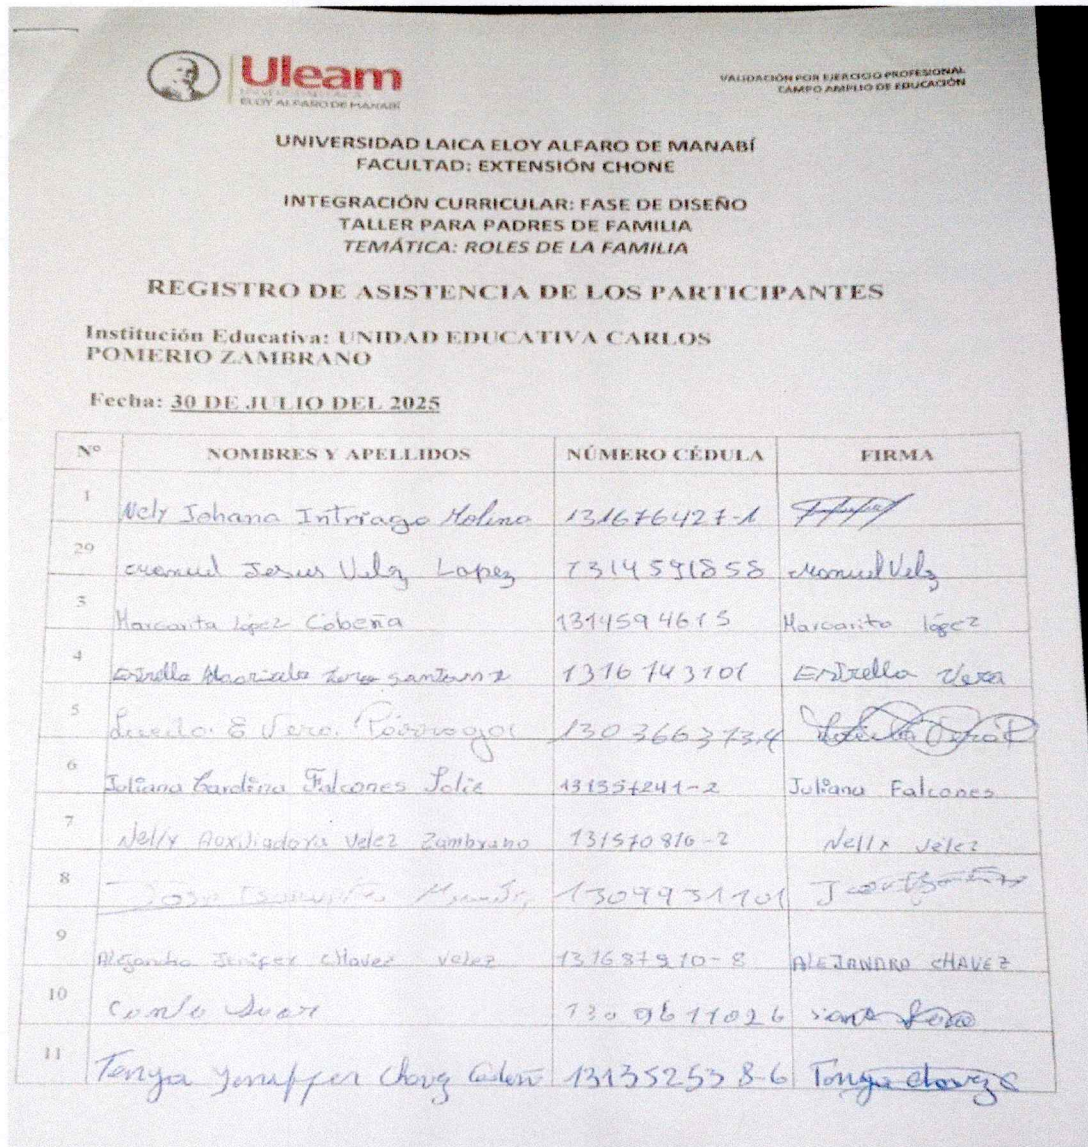 Uleam
ELOY ALFARO DE MANABÍ
VALIDACIÓN POR EJERCICIO PROFESIONAL
CAMPO AMPLIO DE EDUCACIÓN
UNIVERSIDAD LAICA ELOY ALFARO DE MANABÍ
FACULTAD: EXTENSIÓN CHONE
INTEGRACIÓN CURRICULAR: FASE DE DISEÑO
TALLER PARA PADRES DE FAMILIA
TEMÁTICA: ROLES DE LA FAMILIA
REGISTRO DE ASISTENCIA DE LOS PARTICIPANTES
Institución Educativa: UNIDAD EDUCATIVA CARLOS
POMERIO ZAMBRANO
Fecha: 30 DE JULIO DEL 2025
Nº NOMBRES Y APELLIDOS NÚMERO CÉDULA FIRMA
1 Nely Johana Intriago Molina 131676427-1
29 Manuel Jesus Velz Lopez 1314591858 Manuel Velz
3 Margarita López Cobeña 1314594615 Margarita lópez
4 Estrella 1316743101 Estrella Vera
5 E Vera 130366373.4
6 Juliana Carolina Falcones Solie 131357241-2 Juliana Falcones
7 Nelly Auxiliadora Velez Zambrano 131570816-2 Nelly Vélez
8 1309931101
9 Jenifer Chavez Velez 131687910-8 ALEJANDRA CHAVEZ
10 1309611026
11 Tanya Yeniffer Chavz 131352538-6 Tanya chavz